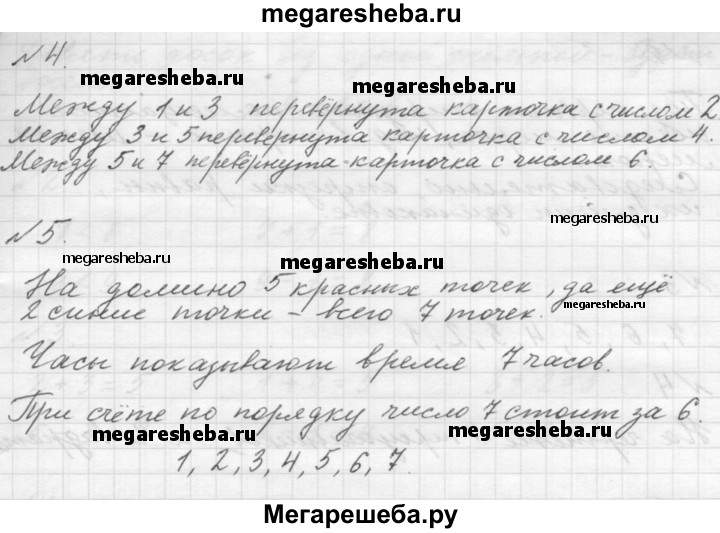 megaresheba.ru
№4.
megaresheba.ru
megaresheba.ru
Между 1 и 3 перевёрнута карточка с числом 2
Между 3 и 5 перевёрнута карточка с числом 4.
Между 5 и 7 перевёрнута карточка с числом 6.
megaresheba.ru
№5.
megaresheba.ru
megaresheba.ru
На домино 5 красных точек, да ещё
megaresheba.ru
2 синие точки – всего 7 точек.
Часы показывают время 7 часов.
При счёте по порядку число 7 стоит за 6.
megaresheba.ru
megaresheba.ru
1, 2, 3, 4, 5, 6, 7.
Мегарешеба.ру